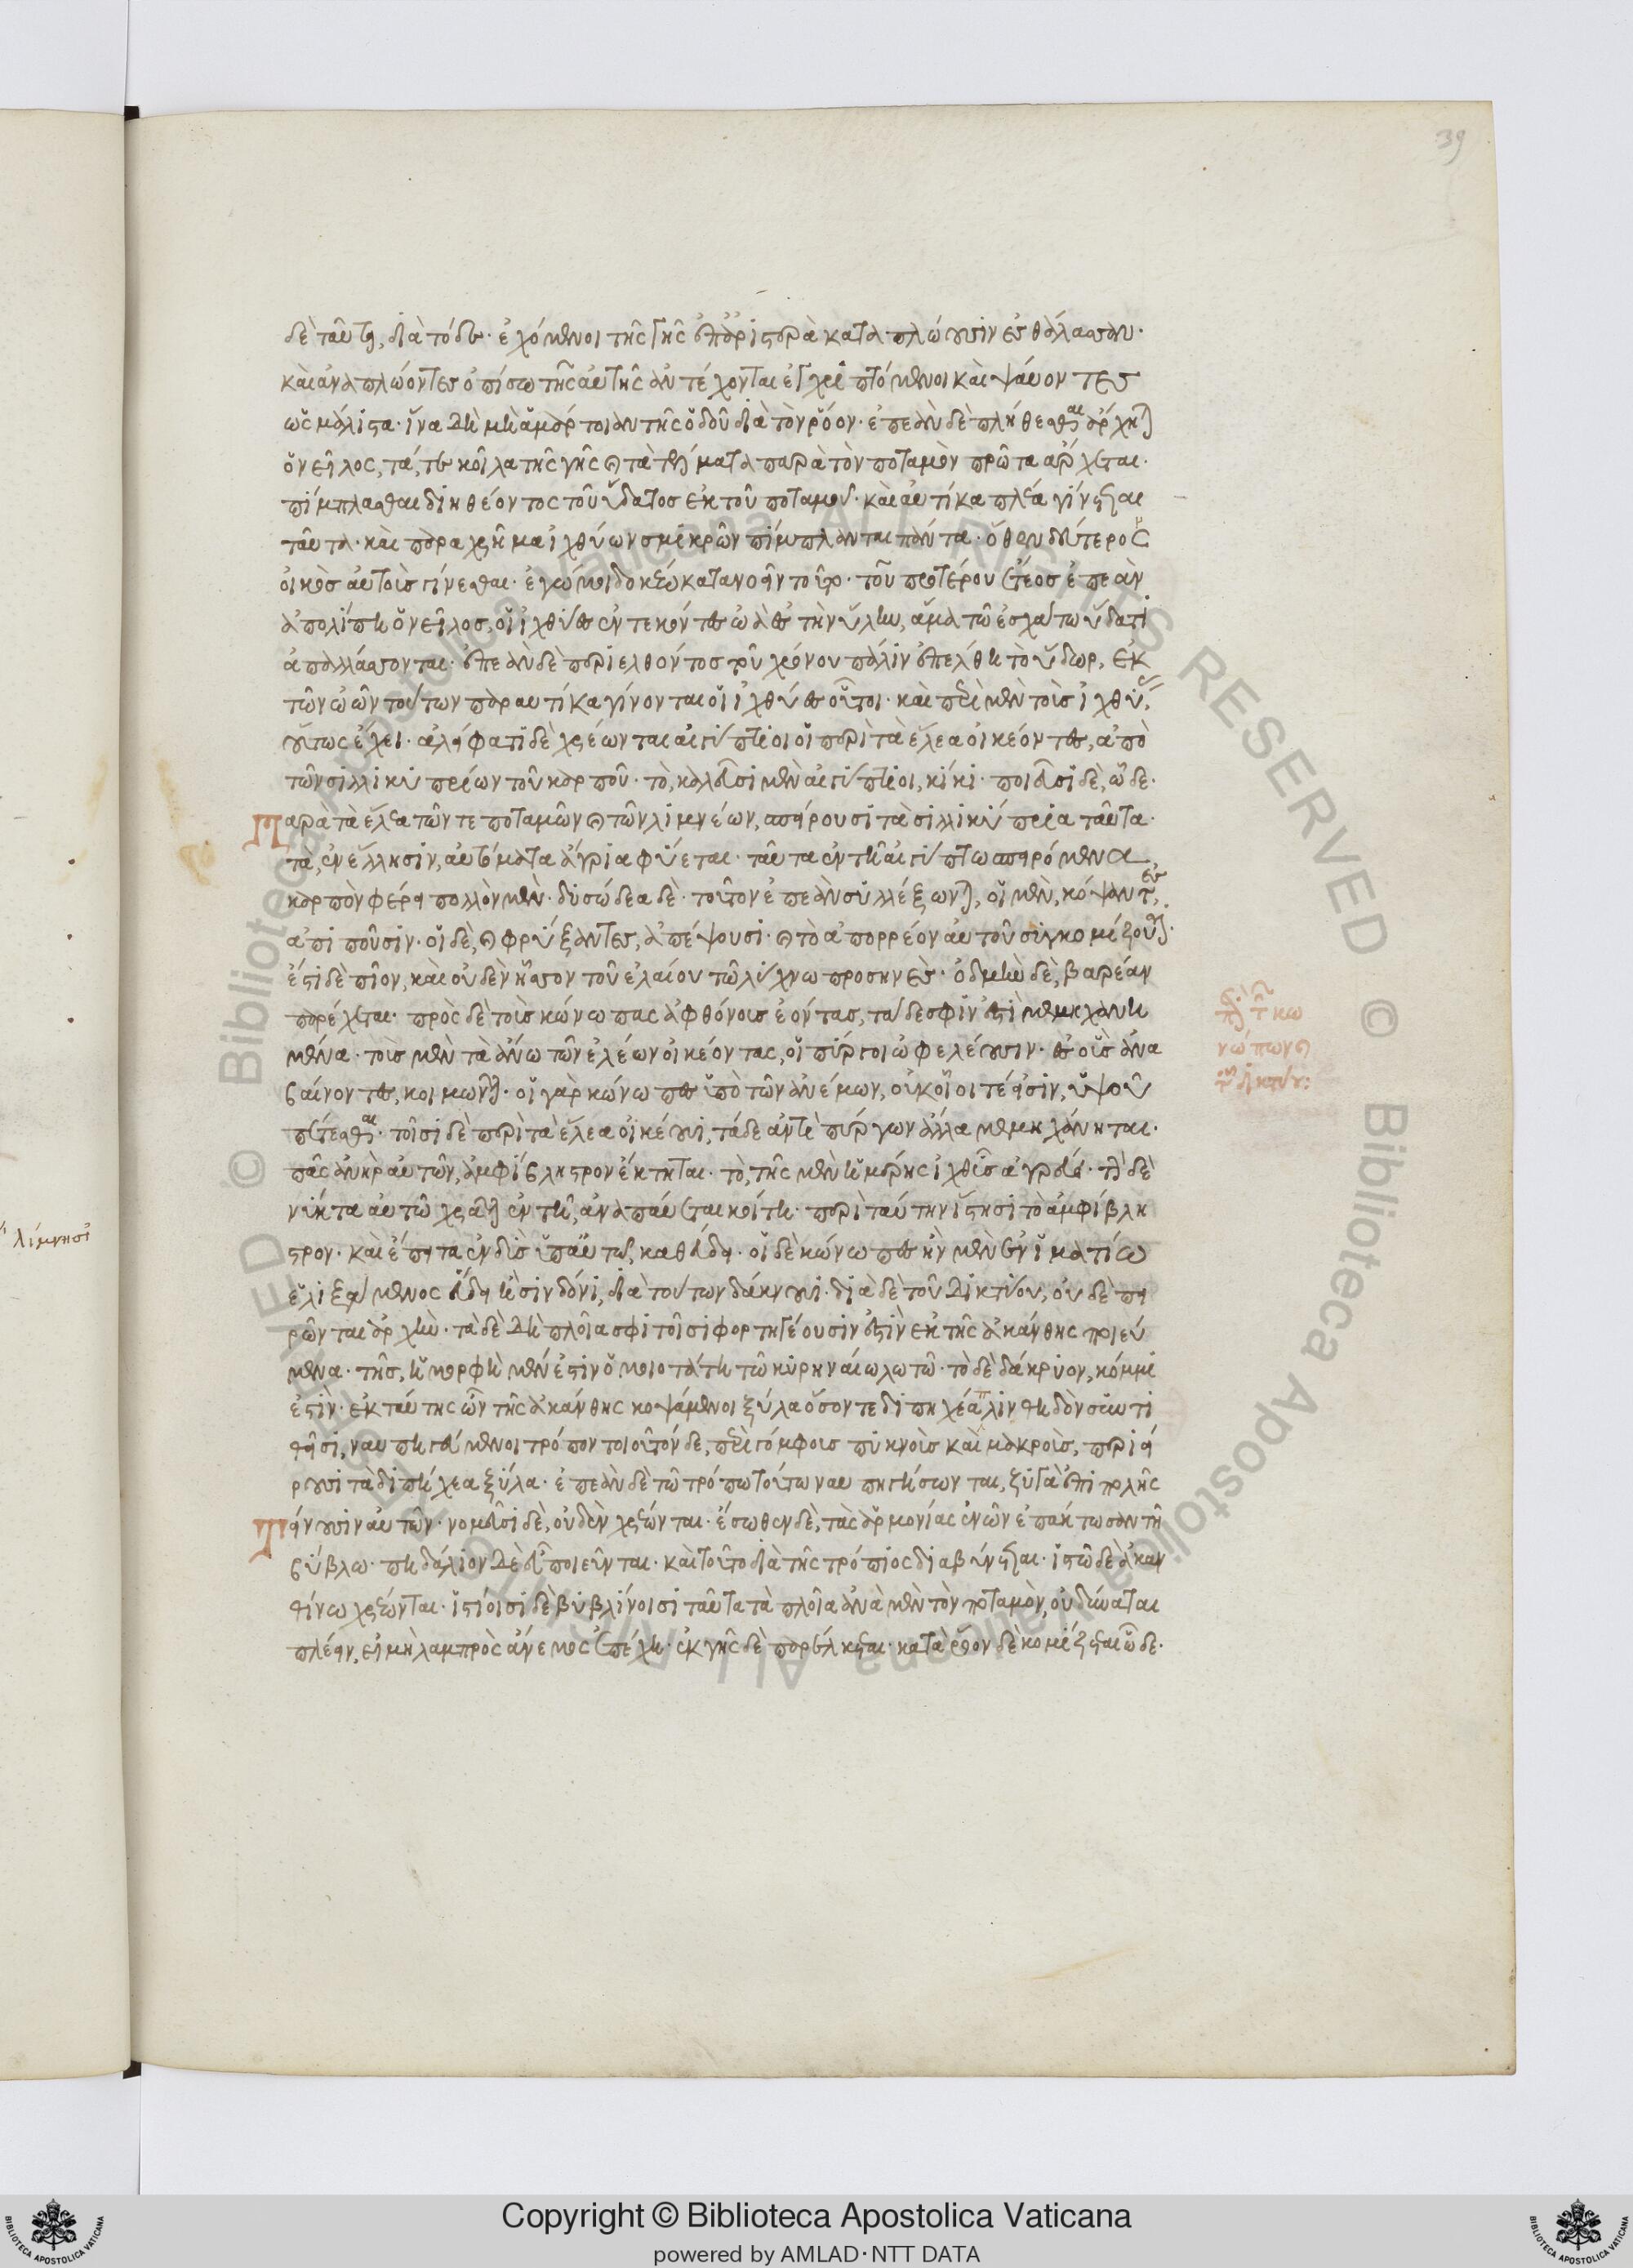 39
δὲ ταῦτα, διὰ τόδε· ἐχόμενοι τῆς γῆς ἐπ' ἀριστερὰ καταπλώουσιν ἐς θάλασσαν·
καὶ ἀναπλώοντες ὀπίσω τῆς αὐτῆς ἀντέχονται ἐγχριπτόμενοι καὶ ψαύοντες
ὡς μάλιστα· ἵνα δὴ μὴ ἁμάρτοιεν τῆς ὁδοῦ διὰ τὸν ῥόον· ἐπεὰν δὲ πληθεσθαι ἄρχηται
ὁ νεῖλος, τά, τε κοῖλα τῆς γῆς καὶ τὰ τέλματα παρὰ τὸν ποταμὸν πρῶτα ἄρχεται·
πίμπλασθαι διηθέοντος τοῦ ὕδατος ἐκ τοῦ ποταμοῦ· καὶ αὐτίκα πλέα γίνεται
ταῦτα· καὶ παραχρῆμα ἰχθύων σμικρῶν πίμπλανται πάντα· ὅθεν δὲ
οἰκὸς αὐτοὺς γίνεσθαι· ἐγώ μοι δοκέω κατανοεῖν τοῦτο· τοῦ προτέρου ἔτεος ἐπεὰν
ἀπολίπη ὁ νεῖλος, οἱ ἰχθύες ἐντεκόντες ὠὰ ἐς τὴν ἰλὺν, ἅμα τῶ ἐσχάτω ὕδατι
ἀπαλλάσσονται· ἐπεὰν δὲ περιελθόντος τοῦ χρόνου πάλιν ἐπέλθη τὸ ὕδωρ, ἐκ
τῶν ὠῶν τούτων παραυτίκα γίνονται οἱ ἰχθύες οὗτοι· καὶ περὶ μὲν τοὺς ἰχθῦς
οὕτως ἔχει· ἀλείφατι δὲ χρέωνται αἰγυπτίοι οἱ περὶ τὰ ἕλεα οἰκέοντες, ἀπὸ
τῶν σιλλικυπρίων τοῦ καρποῦ· τὸ, καλεῦσι μὲν αἰγύπτιοι, κίκι· ποιεῦσι δὲ, ὧδε·
Παρὰ τὰ χείλεα τῶν τε ποταμῶν καὶ τῶν λιμνέων, σπείρουσι τὰ σιλλικύπρια ταῦτα·
τὰ, ἐν ἕλλησιν, αὐτόματα ἄγρια φύεται· ταῦτα ἐν τῆ αἰγύπτω σπειρόμενα
καρπὸν φέρει πολλὸν μὲν· δυσώδεα δὲ· τοῦτον ἐπεὰν συλλέξωνται, οἱ μὲν, κόψαντες
ἀπιποῦσιν· οἱ δὲ, καὶ φρύξαντες, ἀπέψουσι· καὶ τὸ ἀπορρέον ἀπ' αὐτοῦ συγκομίζονται·
ἔστι δὲ πῖον, καὶ οὐδὲν ἧσσον τοῦ ἐλαίου τῶ λύχνω προσηνὲς· ὀδμὴν δὲ, βαρέαν
παρέχεται· πρὸς δὲ τοὺς κώνωπας ἀφθόνους ἐόντας, τάδε σφίν ἐστι μεμηχανη
μένα· τοὺς μὲν τὰ ἄνω τῶν ἑλέων οἰκέοντας, οἱ πύργοι ὠφελέουσιν· ἐς οὓς ἀνα
βαίνοντες, κοιμῶνται· οἱ γὰρ κώνωπες ὑπὸ τῶν ἀνέμων, οὐκ οἷοί τέ εἰσιν, ὑψοῦ
πέτεσθαι· τοῖσι δὲ περὶ τὰ ἕλεα οἰκέουσι, τάδε ἀντὶ πύργων ἄλλα μεμηχάνηται·
πᾶς ἀνὴρ αὐτῶν, ἀμφίβληστρον ἔκτηται· τὸ, τῆς μὲν ἡμέρης ἰχθῦς ἀγρεύει· τὴν δὲ
νύκτα αὐτῶ χρᾶται ἐν τῆ, ἀναπαύεται κοίτη· περὶ ταύτην ἵστησι τὸ ἀμφίβλη
στρον· καὶ ἔπειτα ἐνδὺς ὑπ' αὐτὸ, καθεύδει· οἱ δὲ κώνωπες ἢν μὲν ἐν ἱματίω
ἐλιξάμενος εὕδη ἢ σινδόνι, διὰ τούτων δάκνουσι· διὰ δὲ τοῦ δικτύου, οὐδὲ πει
ρῶνται ἀρχὴν· τὰ δὲ δὴ πλοῖα σφι τοῖσι φορτηγέουσιν ἐστὶν ἐκ τῆς ἀκάνθης ποιεύ
μενα· τῆς, ἡ μορφὴ μέν ἐστιν ὁμοιοτάτη τῶ κυρηναίω λωτῶ· τὸ δὲ δάκρυον, κόμμι
ἐστὶν· ἐκ ταύτης ὦν τῆς ἀκάνθης κοψάμενοι ξύλα ὅσον τε διπηχέα πλινθηδὸν συντι
θεῖσι, ναυπηγεύμενοι τρόπον τοιοῦτόνδε, περὶ γόμφους πυκνοὺς καὶ μακροὺς, περιεί
ρουσι τὰ διπήχεα ξύλα· ἐπεὰν δὲ τῶ τρόπω τούτω ναυπηγήσωνται, ζυγὰ ἐπιπολῆς
τείνουσιν αὐτῶν· νομεῦσι δὲ, οὐδὲν χρέωνται· ἔσωθεν δὲ, τὰς ἁρμονίας ἐν ὦν ἐπάκτωσαν τῆ
βύβλω· πηδάλιον δὲ ἓν ποιεῦνται· καὶ τοῦτο διὰ τῆς τρόπιος διαβύνεται· ἱστῶ δὲ ἀκαν
θίνω χρέωνται· ἱστίοισι δὲ βυβλίνοισι ταῦτα τὰ πλοῖα ἀνὰ μὲν τὸν ποταμὸν, οὐ δύναται
πλέειν, εἰ μὴ λαμπρὸς ἄνεμος ἐπέχη· ἐκ γῆς δὲ παρέλκεται· κατὰ ῥόον δὲ κομίζεται ὧδε·
λίμνησι
Copyright © Biblioteca Apostolica Vaticana
powered by AMLAD·NTT DATA